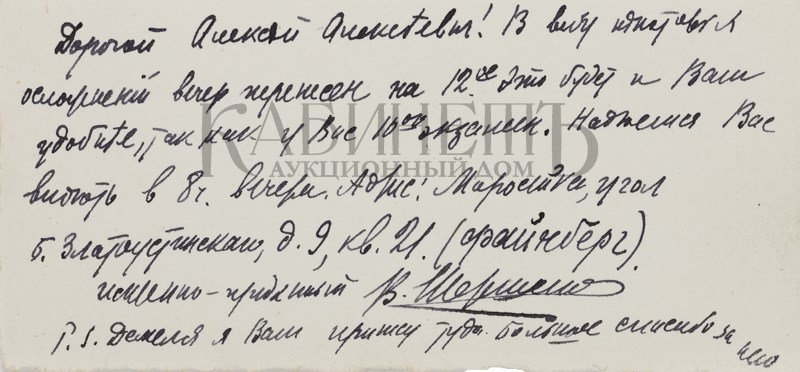 Дорогой Алексей Алексеевич! В виду некоторых
осложнений вечер перенесен на 12ое. Это будет и Вам
удобнее, так как у Вас 10ого экзамен. Надеемся Вас
видеть в 8ч. вечера. Адрес: Маросейка, угол
б. Златоустинского, д. 9, кв. 21. (Файнберг).
искренно-преданный В. Шершене
P.S. Деньги я Вам принесу туда. Большое спасибо за
него
КАБИНЕТЪ
АУКЦИОННЫЙ ДОМ